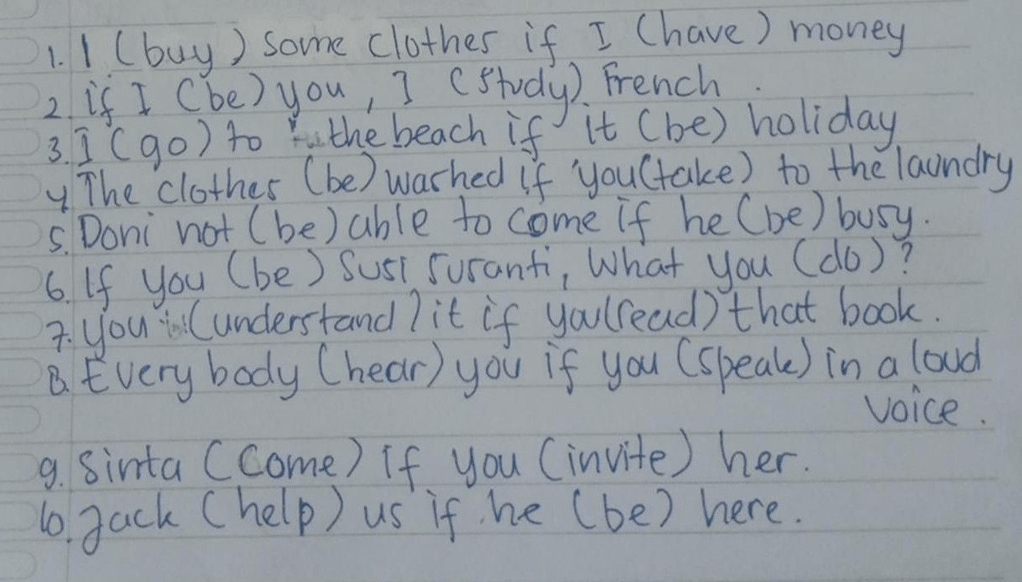 1. I (buy) some clothes if I (have) money
2. if I (be) you, I (study) French.
3. I (go) to the beach if it (be) holiday
4. The clothes (be) washed if you (take) to the laundry
5. Doni not (be) able to come if he (be) busy.
6. If you (be) Susi Susanti, What you (do)?
7. you (understand) it if you (read) that book.
8. Every body (hear) you if you (speak) in a loud
voice.
9. Sinta (Come) if you (invite) her.
10. Jack (help) us if he (be) here.